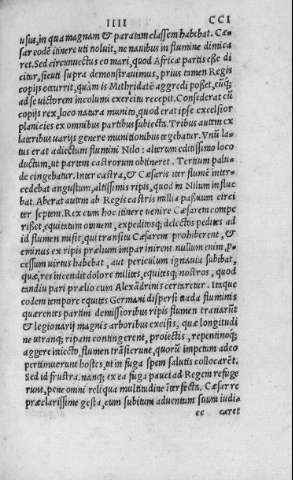 IIII CCI
usus, in qua magnam & paratam classem habebat. Cæ-
sar eodē itinere uti noluit, ne navibus in flumine dimica
ret. Sed circumvectus eo mari, quod Africæ partis esse di
citur, sicuti supra demonstravimus, prius tamen Regis
copijs occurrit, quàm is Mithridatē aggredi posset, eumq́;
ad se victorem incolumi exercitu recepit. Consederat cū
copijs rex, loco natura munito, quod erat ipse excelsior
planicie ex omnibus partibus subiecta. Tribus autm ex
lateribus varijs genere munitionibus tegebatur. Vnū la-
tus erat adiectum flumini Nilo: alterum editissimo loco
ductum, ut partem castrorum obtineret. Tertium palu-
de cingebatur. Inter castra, & Cæsaris iter flumē inter-
cedebat angustum, altissimis ripis, quod in Nilum influe
bat. Aberat autem ab Regis castris milia passuum circi
ter septem. Rex cum hoc itinere venire Cæsarem compe
risset, equitatum omnem, expeditosq; delectos pedites ad
id flumen misit, qui transitu Cæsarem prohiberent, &
eminus ex ripis prælium impar inirent. nullum enim, p-
cessum virtus habebat, aut periculum ignavia subibat,
quæ res incendit dolore milites, equitesq; nostros, quod
tamdiu pari prælio cum Alexādrinis certaretur. Itaque
eodem tempore equites Germani dispersi vada fluminis
quærentes partim demissioribus ripis flumen tranarūt
& legionarij magnis arboribus excisis, quæ longitudi
ne utranq; ripam contingerent, proiectis, repentinoq;
aggere iniecto, flumen trāsierunt, quorū impetum adeo
pertimuerunt hostes, ut in fuga spem salutis collocarēt.
Sed id frustra. nanq; ex ea fuga pauci ad Regem refuge
runt, pene omni reliqua multitudine īterfecta. Cæsar re
præclarissime gesta, cum subitum adventum suum iudi-
cc caret